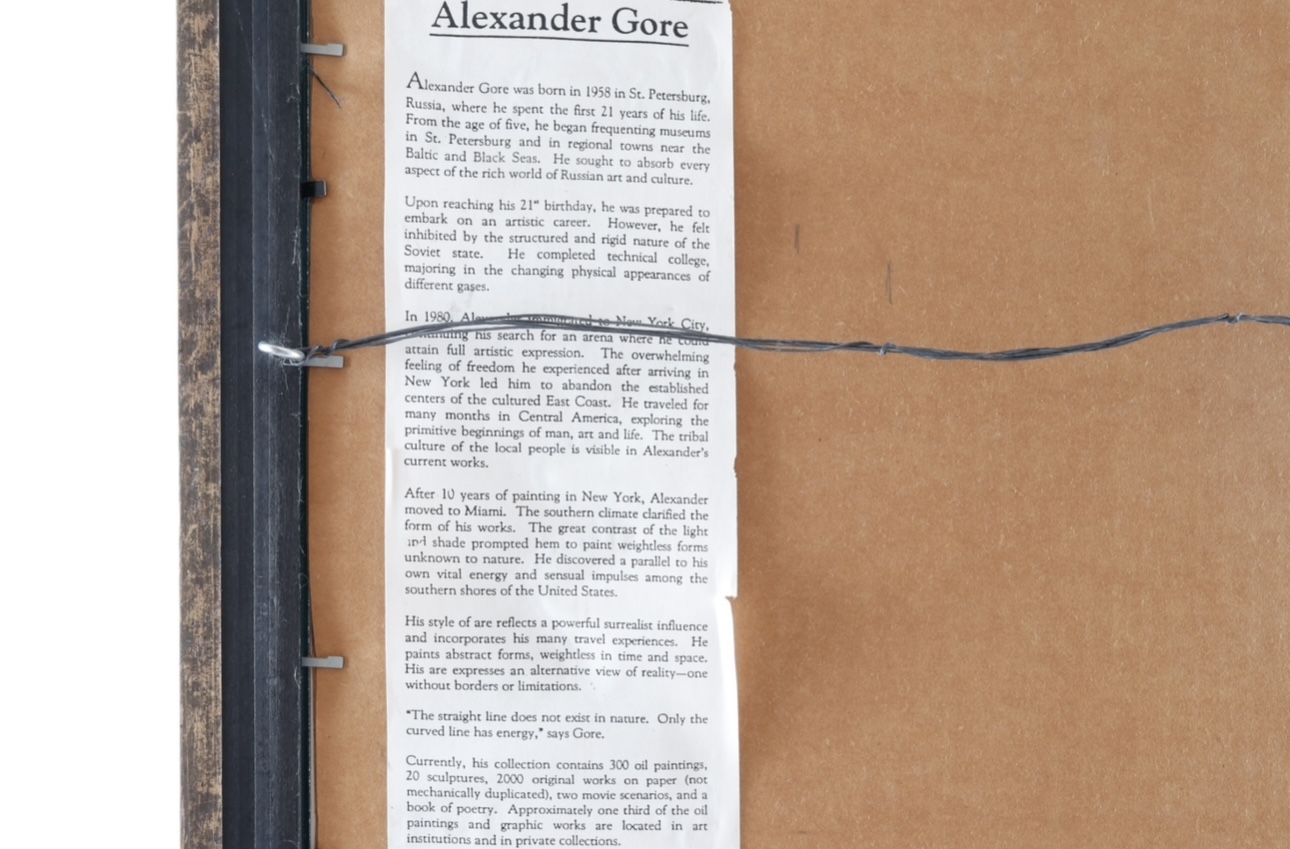 Alexander Gore
Alexander Gore was born in 1958 in St. Petersburg,
Russia, where he spent the first 21 years of his life.
From the age of five, he began frequenting museums
in St. Petersburg and in regional towns near the
Baltic and Black Seas. He sought to absorb every
aspect of the rich world of Russian art and culture.
Upon reaching his 21st birthday, he was prepared to
embark on an artistic career. However, he felt
inhibited by the structured and rigid nature of the
Soviet state. He completed technical college,
majoring in the changing physical appearances of
different gases.
In 1980, Alexander immigrated to New York City,
his search for an arena where he could
attain full artistic expression. The overwhelming
feeling of freedom he experienced after arriving in
New York led him to abandon the established
centers of the cultured East Coast. He traveled for
many months in Central America, exploring the
primitive beginnings of man, art and life. The tribal
culture of the local people is visible in Alexander's
current works.
After 10 years of painting in New York, Alexander
moved to Miami. The southern climate clarified the
form of his works. The great contrast of the light
and shade prompted hem to paint weightless forms
unknown to nature. He discovered a parallel to his
own vital energy and sensual impulses among the
southern shores of the United States.
His style of are reflects a powerful surrealist influence
and incorporates his many travel experiences. He
paints abstract forms, weightless in time and space.
His are expresses an alternative view of reality—one
without borders or limitations.
"The straight line does not exist in nature. Only the
curved line has energy," says Gore.
Currently, his collection contains 300 oil paintings,
20 sculptures, 2000 original works on paper (not
mechanically duplicated), two movie scenarios, and a
book of poetry. Approximately one third of the oil
paintings and graphic works are located in art
institutions and in private collections.